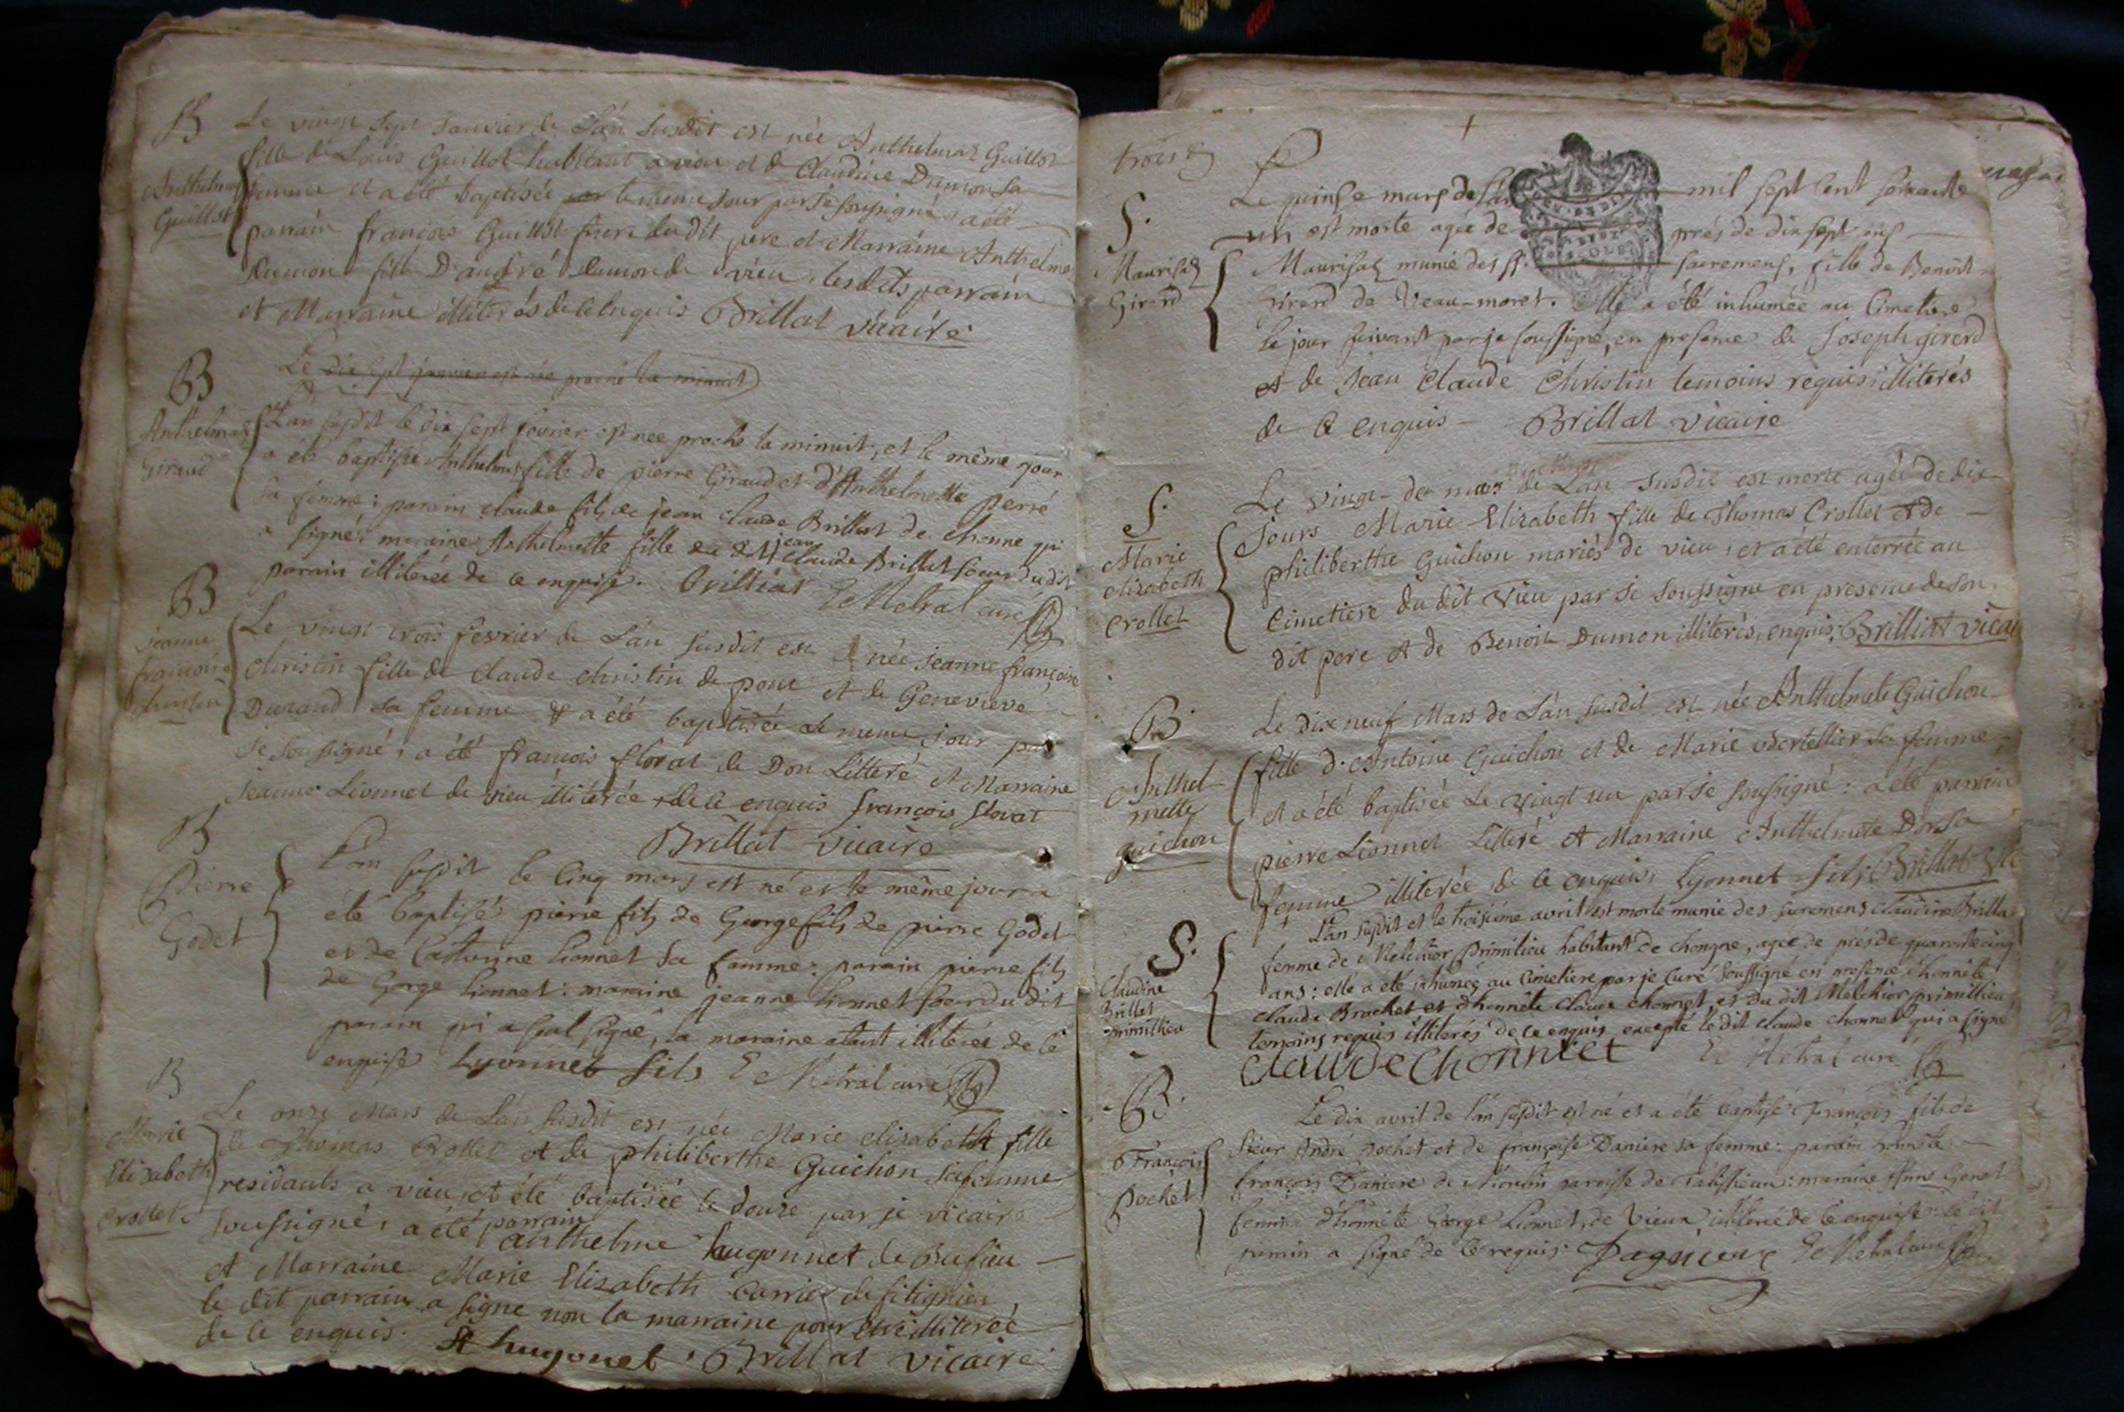 B
Le vingt sept Janvier de L'an susdit est née Anthelmaz Guillot
Anthelmaz
Guillot
fille de Louis Guillot habitant a vieu et de Claudine Dumon sa
femme et a été baptisée le meme jour par je soussigné, a été
parrain françois Guillot frere du dit pere et Marraine Anthelme
Dumon fille D'andré dumon de vieu, lesdits parrain
et Marraine illiterés de ce enquis Brillat vicaire
Le dix sept janvier est née proche la minuit
B
Anthelmaz
Giraud
L'an susdit le dix sept fevrier est née proche la minuit, et le même jour
a été baptisée Anthelmaz fille de pierre Giraud et d'Anthelmette perré
sa femme : parain claude fils de jean claude Brillat de chonne qui
a signé : maraine Anthelmette fille du dit jean claude Brillat soeur du dit
parain illiterée de ce enquise. Brilliat De Metral curé
B
jeanne
françoise
christin
Le vingt trois fevrier de L'an susdit est née jeanne françoise
christin fille de claude christin de pont et de Genevieve
Durand sa femme & a été baptisée le meme jour par
je soussigné, a été françois florat de Don Litteré et Marraine
jeanne Lionnet de vieu illitérée de ce enquis françois florat
Brillat vicaire
B
Pierre
Godet
L'an susdit le cinq mars est né et le même jour a
été baptisé pierre fils de George fils de pierre Godet
et de Catherine Lionnet sa femme : parain pierre fils
de George Lionnet : maraine jeanne Lionnet soeur du dit
parain qui a seul signé, la maraine etant illiterée de ce
enquise Lyonnet fils De Metral curé
B
Marie
Elizabeth
Crollet
Le onze Mars de L'an susdit est née Marie elizabeth fille
de Thomas Crollet et de philiberthe Guichon sa femme
residants a vieu, et été baptisée le douze par je vicaire
soussigné, a été parrain anthelme hugonnet de Busieu
et Marraine Marie Elizabeth Carrier de fitignieu
le dit parrain a signé non la marraine pour etre illiterée
de ce enquis. A hugonet Brillat vicaire
trois
S.
Maurisaz
Girerd
Le quinse mars de l'an mil sept cent soixante
un est morte agée de près de dix sept ans
Maurisaz munie des ss. sacremens, fille de Benoit
Girerd de Veau-moret. Elle a été inhumée au Cimetiere
le jour suivant par je soussigné, en presence de Joseph girerd
et de Jean Claude Christin temoins requis illiterés
de ce enquis - Brillat vicaire
S.
Marie
elizabeth
crollet
Le vingt de mars de L'an susdit est morte agée de dix
jours Marie Elizabeth fille de Thomas Crollet et de
philiberthe Guichon mariés de vieu, et a été enterrée au
Cimetiere du dit vieu par je soussigné en presence de son
dit pere et de Benoit Dumon illiterés, enquis, Brilliat vicai
B
Anthel
mette
guichon
Le dix neuf Mars de L'an susdit est née Anthelmete Guichon
fille d'Antoine Guichon et de Marie Bertellier sa femme,
et a été baptisée Le vingt un par je soussigné : a été parrain
pierre Lionnet Litteré et Marraine Anthelmete
femme illiterée de ce enquis, Lyonnet fils Brillat
S.
Claudine
Brillat
primillieu
L'an susdit et le troisième avril est morte munie des sacremens claudine Brillat
femme de Melchior Primilieu habitant de chongne, agée de près de quarante cinq
ans : elle a été inhumée au cimetiere par je curé soussigné en presence d'honnête
claude Brachet et d'honnête claude chonnet et du dit Melchior primillieu
temoins requis illiterés de ce enquis excepté le dit claude chonnet qui a signé
claude chonniet De Metral curé
B.
François
Pochet
Le dix avril de l'an susdit est né et a été baptisé François fils de
sieur André Pochet et de françoise Daniere sa femme : parain
françois Daniere de paroisse de : maraine Anne Genet
femme d'honnête George Lionnet, de Vieux illiterée de ce enquise : le dit
parain a signé de ce requis. De Metral curé